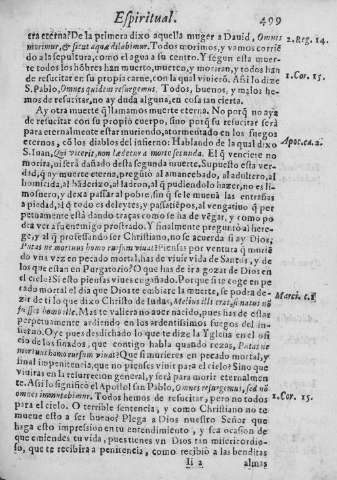 Espiritual. 499
era eterna? De la primera dixo aquella muger a Dauid, Omnes
morimur, & sicut aquæ dilabimur. Todos morimos, y vamos corriẽ
do a la sepultura, como el agua a su centro. Y segun esta muer-
te todos los hõbres han muerto, muerẽ, y moriran, y todos han
de resucitar en su propia carne, con la qual viuierõ. Assi lo dize
S. Pablo, Omnes quidem resurgemus. Todos, buenos, y malos he-
mos de resucitar, no ay duda alguna, en cosa tan cierta.
Ay otra muerte q̃ llamamos muerte eterna. No porq̃ no aya
de resucitar con su propio cuerpo, sino porq̃ su resucitar será
para eternalmente estar muriendo, atormẽtado en los fuegos
eternos, cõ los diablos del infierno: Hablando de la qual dixo
S. Iuan, Qui vicerit, non lædetur a morte secunda. El q̃ venciere no
morira, ni será dañado desta segunda muerte. Supuesta esta ver-
dad, q̃ ay muerte eterna, pregũto al amancebado, al adultero, al
homicida, al bãdolero, al ladron, al q̃ pudiendolo hazer, no es li-
mosnero, y dexa passar al pobre, sin q̃ se le mueuã las entrañas
a piedad, al q̃ todo es deleytes, y passatiẽpos, al vengatiuo q̃ per
petuamente está dando traças como se ha de vẽgar, y como po
dra ver a su enemigo prostrado. Y finalmente pregunto al here-
ge, y al q̃ professando ser Christiano, no se acuerda si ay Dios,
Putas ne mortuus homo rursum viuat? Piensas por ventura q̃ muriẽ
do vna vez en pecado mortal, has de viuir vida de Santos, y de
los que estan en Purgatorio? O que has de ir a gozar de Dios en
el cielo? Si esto piensas viues engañado. Porque si te coge en pe
cado mortal el dia que Dios te embiare la muerte, se podrá de-
zir de ti lo que dixo Christo de Iudas, Melius illi erat, si natus nõ
fuisset homo ille. Mas te valiera no auer nacido, pues has de estar
perpetuamente ardiendo en los ardentissimos fuegos del in-
fierno. Oye pues desdichado lo que te dize la Yglesia en el ofi
cio de los finados, que contigo habla quando rezas, Putas ne
mortuus homo rursum viuat? Que si murieres en pecado mortal, y
final impenitencia, que no pienses viuir para el cielo? Sino que
viuiras en la resurreccion general, y será para morir eternalmen
te. Assi lo significò el Apostol san Pablo, Omnes resurgemus, sed nõ
omnes immutabimur. Todos hemos de resucitar, pero no todos
para el cielo. O terrible sentencia, y como Christiano no te
mueue esto a ser bueno? Plega a Dios nuestro Señor que
haga esto impression en tu entendimiento, y sea ocasion de
que emiendes tu vida, pues tienes vn Dios tan misericordio-
so, que te recibira a penitencia, como recibio a las benditas
Ii 2 almas
2. Reg. 14.
1. Cor. 15.
Apoc. ca. 2.
1. Cor. 15.